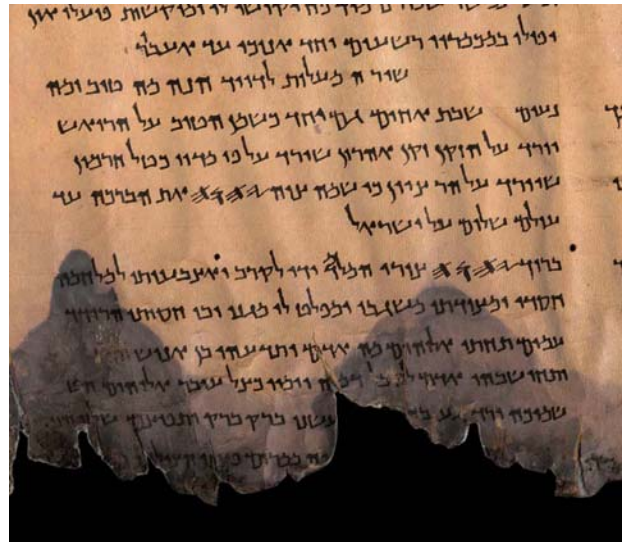 פח יקושו לי ומוקשות פועלי און
יפולו במכמריו רשעים יחד אנוכי עד אעבור
שיר המעלות לדויד הנה מה טוב ומה
נעים שבת אחים גם יחד כשמן הטוב על הרואש
יורד על הזקן זקן אהרון שיורד על פי מדיו כטל חרמון
שיורד על הר ציון כי שמה צוה 𐤉𐤄𐤅𐤄 את הברכה עד
עולם שלום על ישראל
ברוך 𐤉𐤄𐤅𐤄 צורי המלמד ידי לקרב ואצבעותי למלחמה
חסדי ומצודתי משגבי ומפלט לי מגני ובו חסיתי הרודד
עמים תחתי אלוהים מה אדם ותדעהו בן אנוש
אדם וימיו כצל עובר אלוהים הט
שמיכה ורד גע ברוק ברק ותפיצם